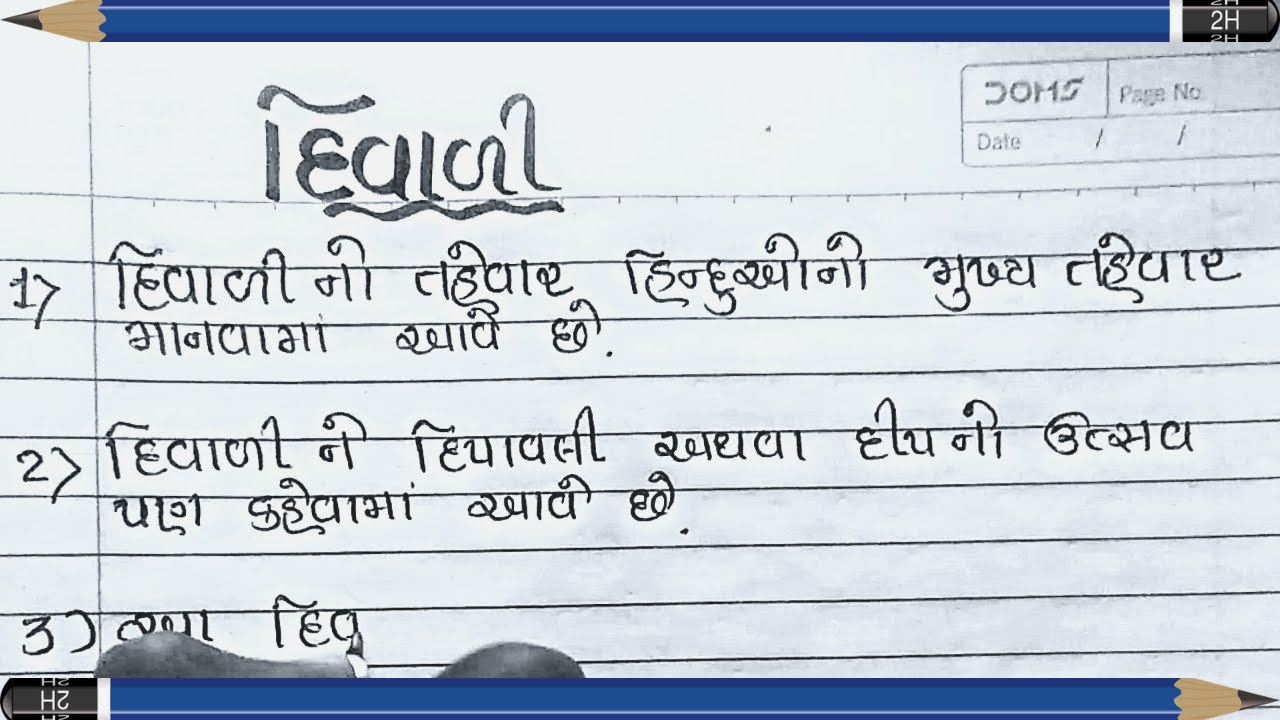 2H
DOMS Page No.
Date / /
દિવાળી
1) દિવાળી નો તહેવાર હિન્દુઓનો મુખ્ય તહેવાર
માનવામાં આવે છે.
2) દિવાળી ને દિપાવલી અથવા દીપનો ઉત્સવ
પણ કહેવામાં આવે છે.
3) આ દિવ
2H